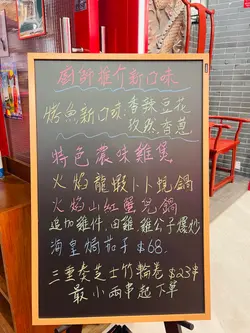 廚師推介新口味
烤魚新口味:香辣豆花
玫瑰香蔥
特色濃味雞煲
火焰龍蝦卜卜蜆鍋
火焰山紅蟹兒鍋
追加雞件．田雞．雞公子爆炒
海皇焗茄子$68.
三重奏芝士竹輪卷$23串
最小兩串起下單